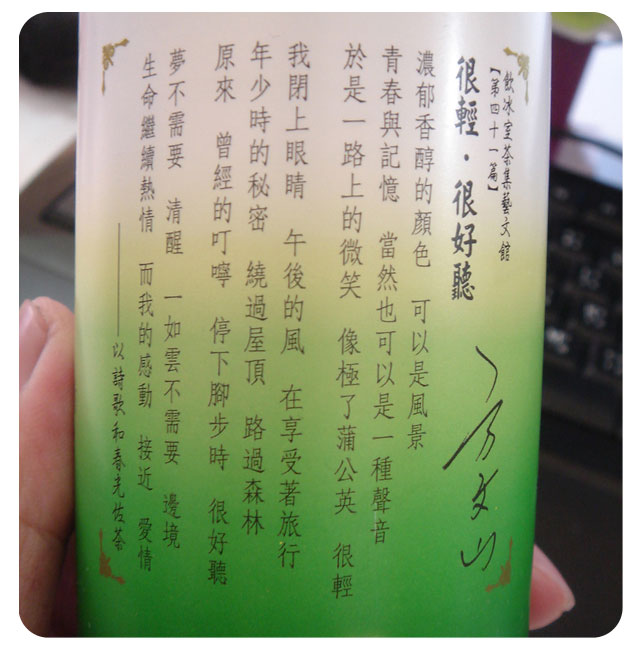 飲冰室茶集藝文館
【第四十一篇】
很輕．很好聽
方文山
濃郁香醇的顏色 可以是風景
青春與記憶 當然也可以是一種聲音
於是一路上的微笑 像極了蒲公英 很輕
我閉上眼睛 午後的風 在享受著旅行
年少時的秘密 繞過屋頂 路過森林
原來 曾經的叮嚀 停下腳步時 很好聽
夢不需要 清醒 一如雲不需要 邊境
生命繼續熱情 而我的感動 接近 愛情
———以詩歌和春光佐茶